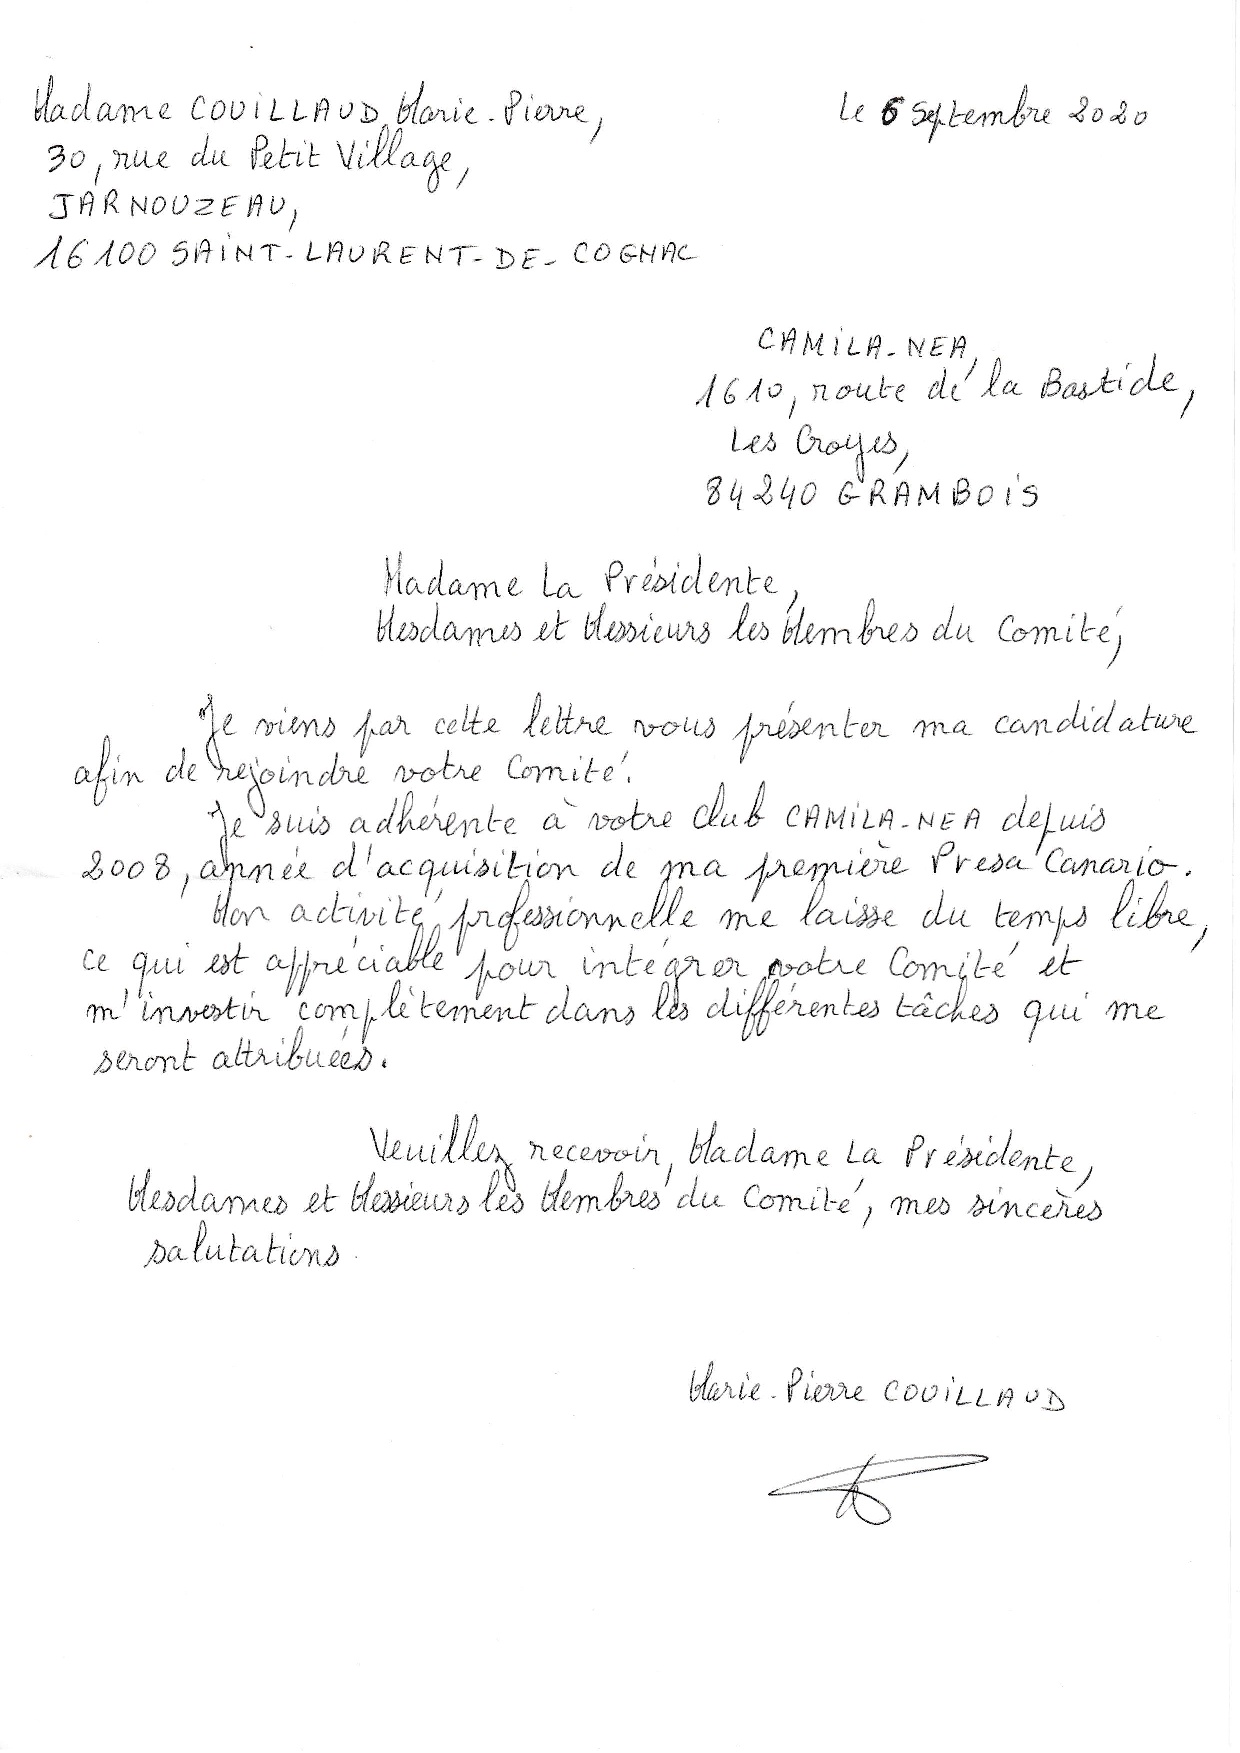 Madame COUILLAUD Marie-Pierre,
le 6 Septembre 2020
30, rue du Petit Village,
JARNOUZEAU,
16100 SAINT-LAURENT-DE-COGNAC
CAMILA-NEA,
1610, route de la Bastide,
Les Croyes,
84240 GRAMBOIS
Madame La Présidente,
Mesdames et Messieurs les Membres du Comité,
Je viens par cette lettre vous présenter ma candidature
afin de rejoindre votre Comité.
Je suis adhérente à votre club CAMILA-NEA depuis
2008, année d'acquisition de ma première Presa Canario.
Mon activité professionnelle me laisse du temps libre,
ce qui est appréciable pour intégrer votre Comité et
m'investir complètement dans les différentes tâches qui me
seront attribuées.
Veuillez recevoir, Madame La Présidente,
Mesdames et Messieurs les Membres du Comité, mes sincères
salutations.
Marie-Pierre COUILLAUD